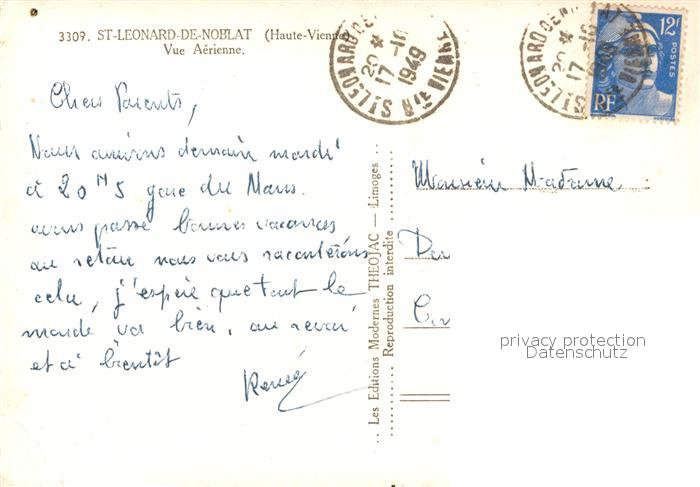 3309. ST-LEONARD-DE-NOBLAT (Haute-Vienne)
Vue Aérienne.
Chers Parents,
Nous arrivons demain mardi
à 20 H 5 gare du Mans.
avons passé bonnes vacances
au retour nous vous raconterons
cela, j'espère que tout le
monde va bien, au revoir
et à bientôt
René
.. Les Editions Modernes THEOJAC — Limoges ..
Reproduction interdite
ST LEONARD DE N
20 *
17-10
1949
Hte VIENNE
ST LEONARD DE N
20 *
17-10
VIENNE
12F
POSTES
RF
Monsieur Madame
privacy protection
Datenschutz